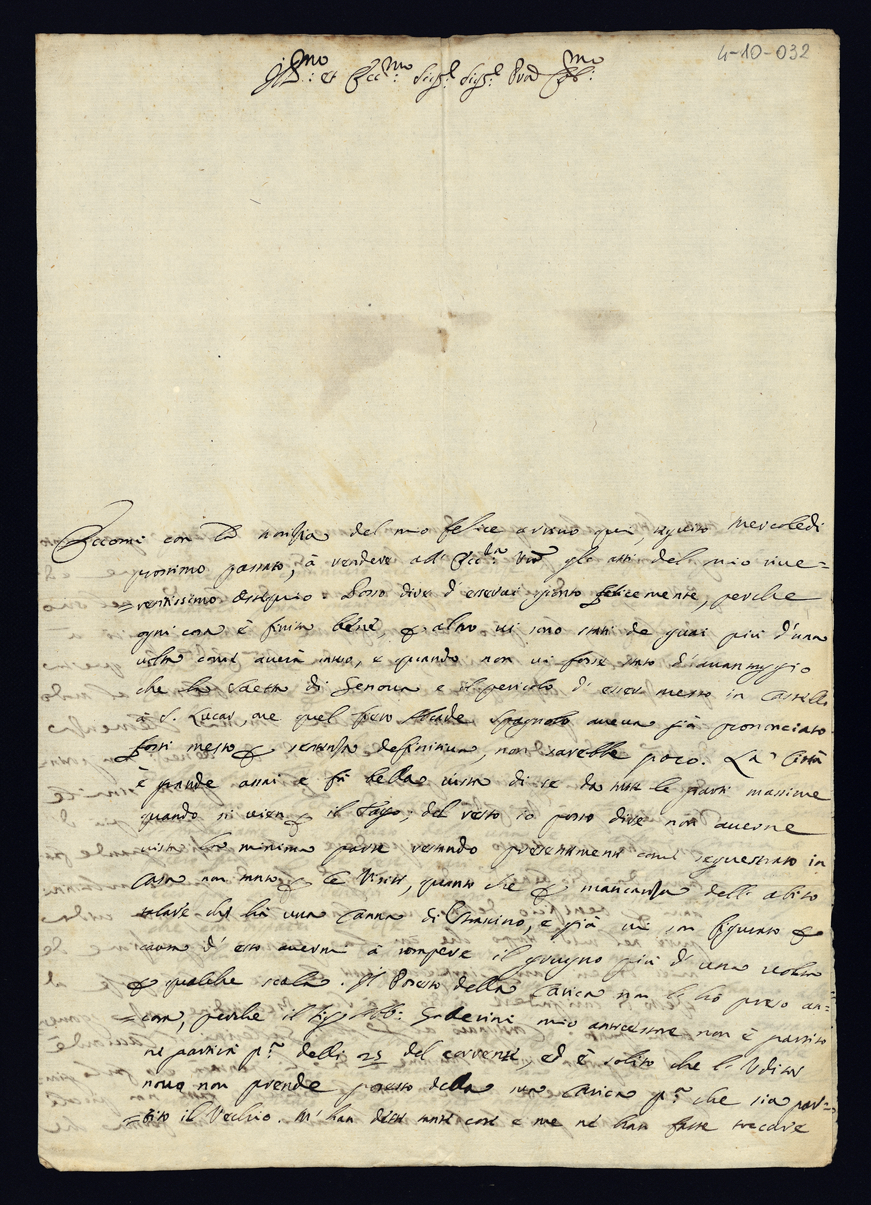 4-10-032
Ill.mo: et Ecc.mo: Sig.r Sig.r Pron Col.mo:
Eccomi con la notitia del mio felice arrivo qui, seguito Mercoledi
prossimo passato, à rendere all' Ecc.za: Vra gli atti del mio rive=
=rentissimo ossequio: Posso dire d'esservi gionto felicemente, perche
ogni cosa è finita bene, altro vi sono stati de guai più d'una
volta come averà inteso, e quando non vi fosse stato d'avantaggio
che la saetta di Genova e il pericolo d'esser messo in Castello
à S. Lucar, ove quel fiero Alcade Spagnolo aveva già prononciato
sentenza definitiva, non sarebbe poco. La Città
è grande assai e fà bella vista di se da tutte le parti massime
quando si vien il Tago; del resto io posso dire non averne
vista la minima parte restando presentemente come sequestrato in
Casa non tanto le Visite, quanto che mancanza dell' abito
talare che hà una Canna di Strascino, e già mi son figurato
causa d'esso avermi à rompere il grugno più d'una volta
qualche scala. Il Posesso della Carica non l'ho preso an=
=cora, perche il mio antecessore non è partito
ne partirà p.a delli 25 del corrente, ed è solito che l'Uditor
novo non prende posesso della sua Carica p.a che sia par=
=tito il Vechio. M'han dette tante cose e me ne han fatte toccare